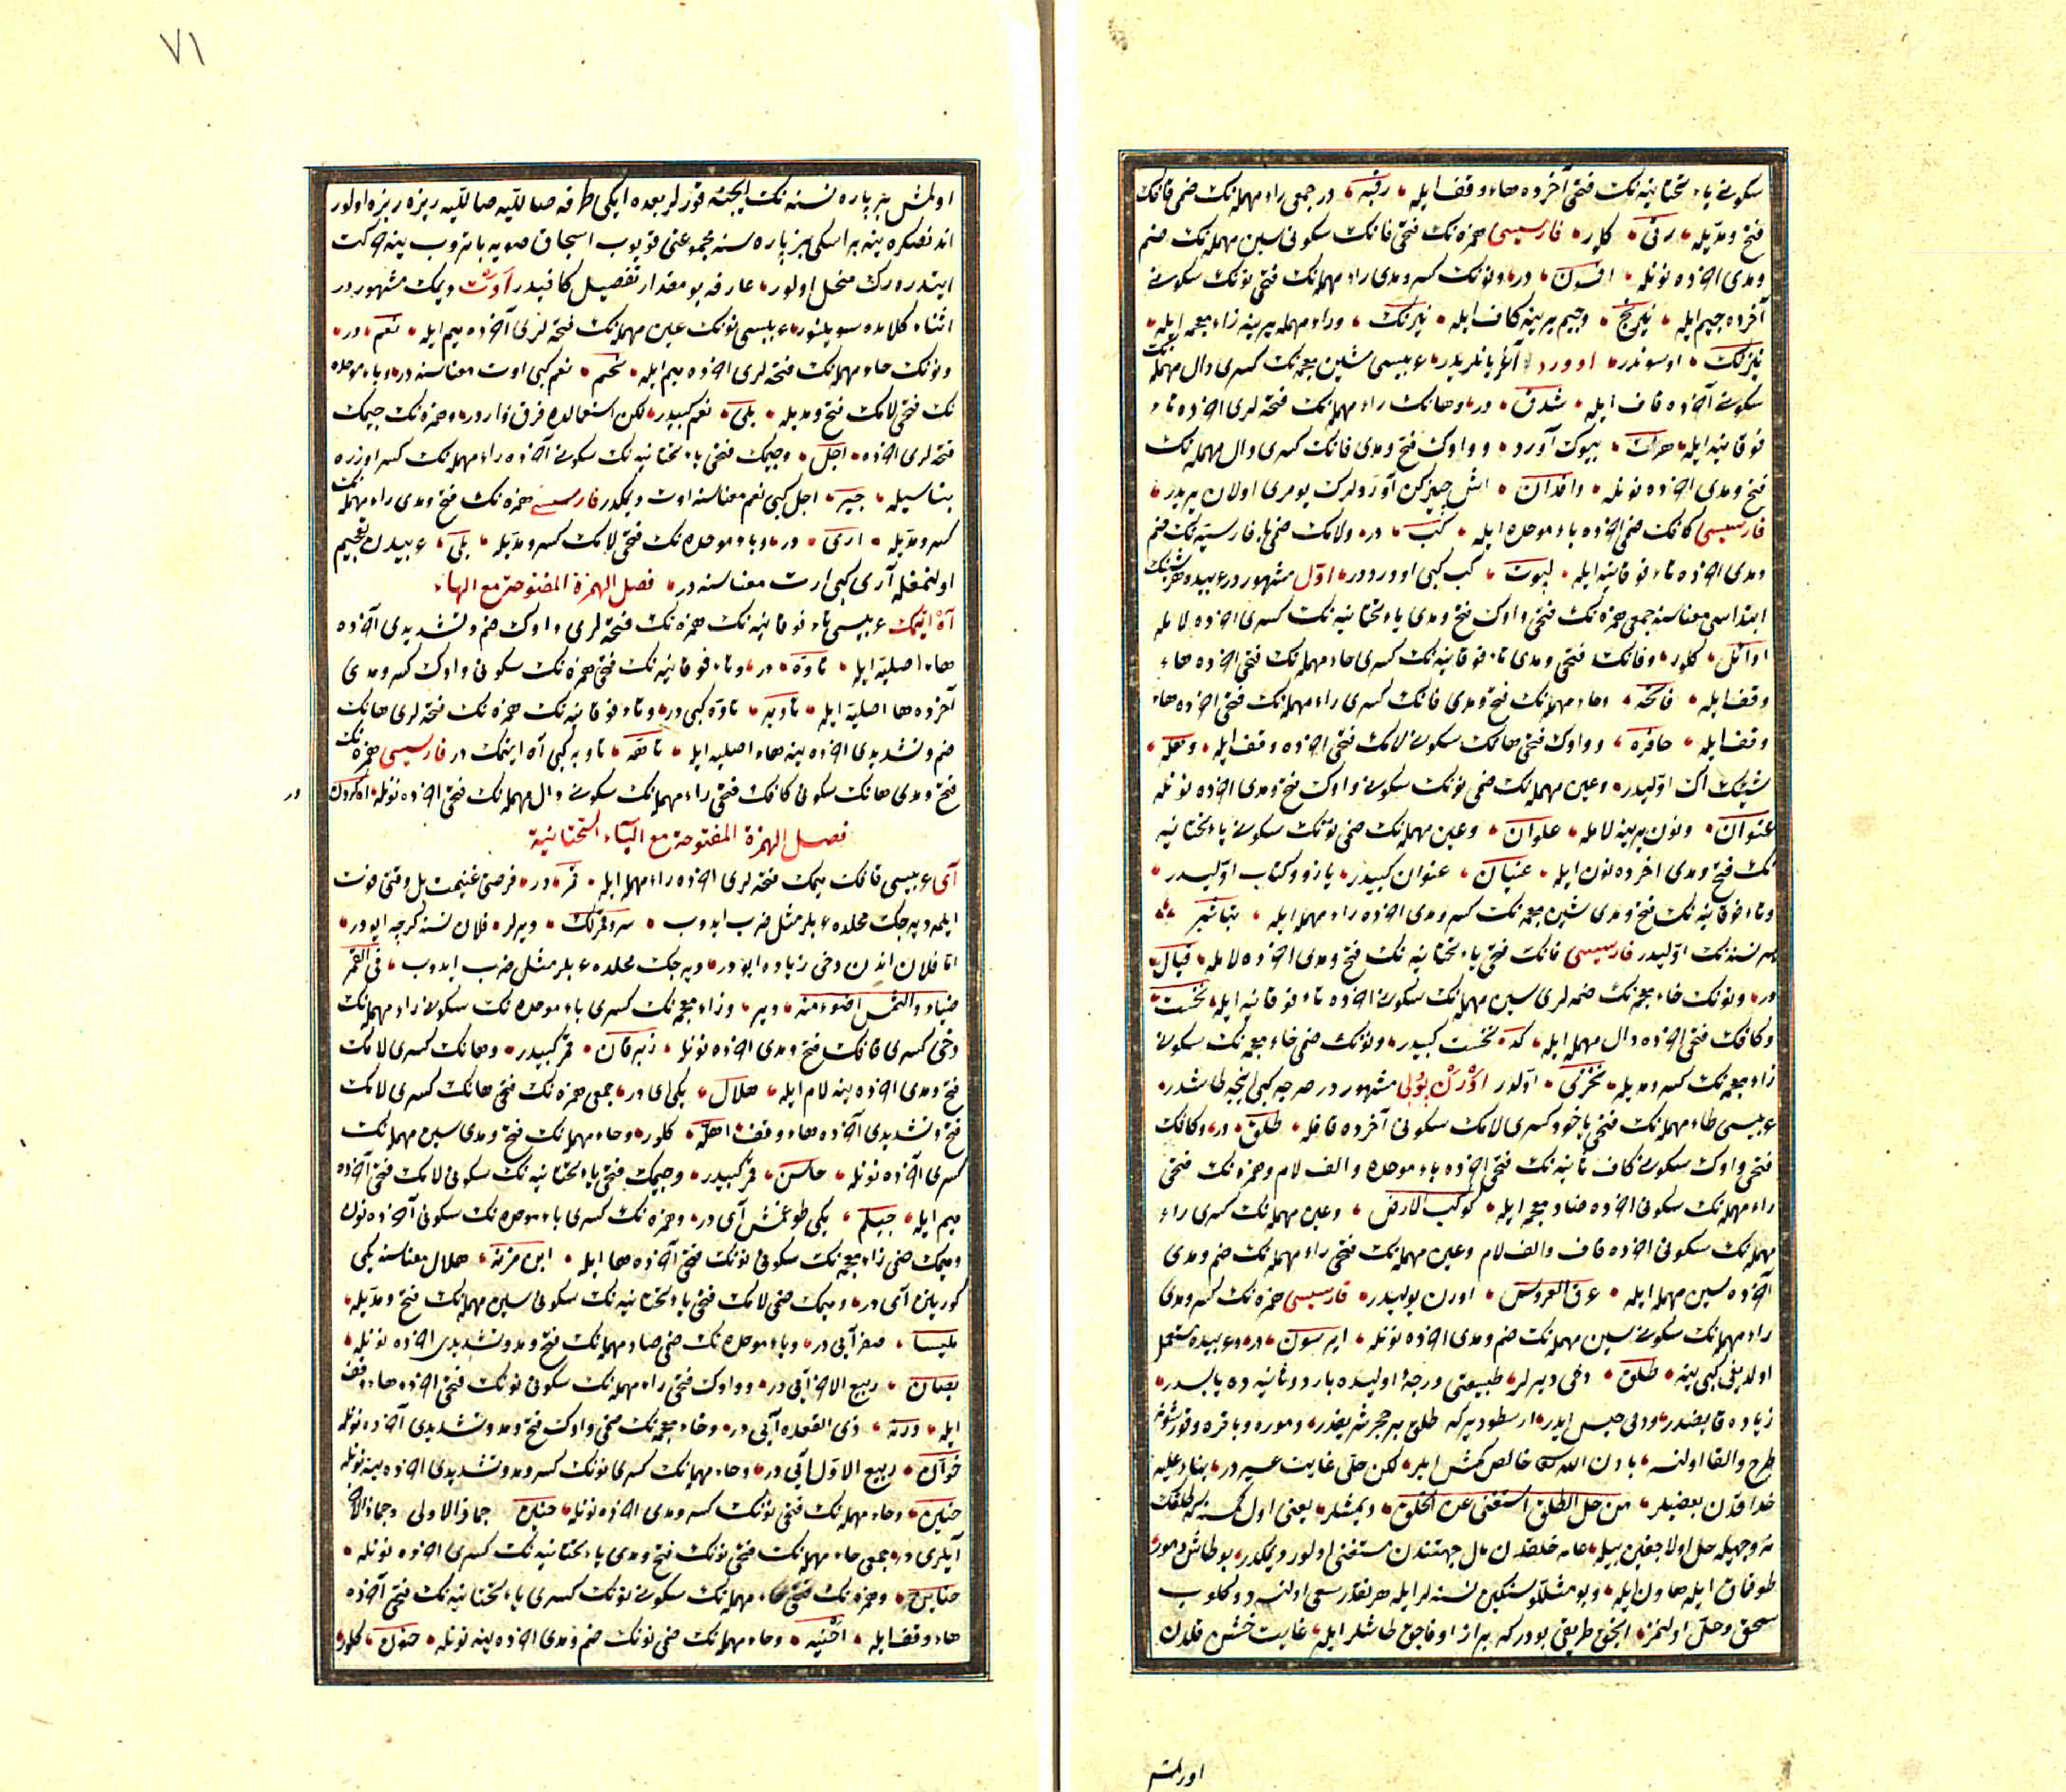 سكونى ياء تحتانيه نك فتحى آخرده هاء وقف ايله رقيه در جمعى راء مهمله نك ضمى قافك
فتح ومديله رقى كلور فارسيسى همزه نك فتحى فانك سكونى سين مهمله نك ضم
ومدى اخرده نونله افسون در ونونك كسر ومدى راء مهمله نك فتحى نونك سكونى
آخرده جيم ايله نيرنج وجيم يرينه كاف ايله نيرنك وراء مهمله يرينه زاء معجمه ايله
نيزنك اوسوندر اوورد آغز يانلريدر عربيسى شين معجمه نك كسرى دال مهمله نك
سكونى آخرده قاف ايله شدق در وهانك راء مهمله نك فتحه لرى اخرده تاء
فوقانيه ايله هرات بيوك آورد وواوك فتح ومدى فانك كسرى دال مهمله نك
فتح ومدى اخرده نونله وافدان
فارسيسى كافك ضمى اخرده باء موحده ايله كب در ولامك ضمى باء فارسيه نك ضم
ومدى اخرده تاء فوقانيه ايله لپوت كب كبى اوورددر اوّل مشهوردر عربيده هر شينك
ابتداسى معناسنه جمعى همزه نك فتحى واوك فتح ومدى ياء تحتانيه نك كسرى اخرده لامله
اوائل كلور وفانك فتحى ومدى تاء فوقانيه نك كسرى حاء مهمله نك فتحى اخرده هاء
وقف ايله فاتحه وحاء مهمله نك فتح ومدى فانك كسرى راء مهمله نك فتحى اخرده هاء
وقف ايله حافره وواوك فتحى هانك سكونى لامك فتحى اخرده وقف ايله وهله
شينك اك اوّليدر وعين مهمله نك ضمى نونك سكونى واوك فتح ومدى اخرده نونله
عنوان ونون يرينه لامله علوان وعين مهمله نك ضمى نونك سكونى ياء تحتانيه
نك فتح ومدى اخرده نون ايله عنيان عنوان كبيدر يازو وكتاب اوّليدر
وتاء فوقانيه نك فتح ومدى شين معجمه نك كسر ومدى اخرده راء مهمله ايله تباشير
هر نسنه نك اوّليدر فارسيسى فانك فتحى ياء تحتانيه نك فتح ومدى اخرده لامله فيال
در ونونك خاء معجمه نك ضمه لرى سين مهمله نك سكونى اخرده تاء فوقانيه ايله نخست
وكافك فتحى اخرده دال مهمله ايله كد نخست كبيدر ونونك ضمى خاء معجمه نك سكونى
زاء معجمه نك كسر ومديله نخزى اوّلدر اورن پولى مشهوردر صرچه كبى اينجه طاشدر
عربيسى طاء مهمله نك فتحى ياخود كسرى لامك سكونى آخرده قافله طلق در وكافك
فتحى واوك سكونى كاف ثانيه نك فتحى اخرده باء موحده والف لام وهمزه نك فتحى
راء مهمله نك سكونى اخرده ضاد معجمه ايله كوكب الارض وعين مهمله نك كسرى راء
مهمله نك سكونى اخرده قاف والف لام وعين مهمله نك فتحى راء مهمله نك ضم ومدى
آخرده سين مهمله ايله عرق العروس اورن پوليدر فارسيسى همزه نك كسر ومدى
راء مهمله نك سكونى سين مهمله نك ضم ومدى اخرده نونله ايرسون در وعربيده مستعمل
اولديغى كبى ينه طلق دخى ديرلر طبيعتى درجۀ اوليده بارد وثانيه ده يابسدر
زياده قابضدر ودمى حبس ايدر ارسطو ديركه طلق بر حجر شريفدر
طرح والقا اولنسه باذن الله خالص كمش ايلر لكن حلى غايت عسيردر بناء عليه
خداقدن بعضيلر من حل الطلق استغنى عن الخلق ديمشلر يعنى اول كمسنه كه طلقك
نه وجهيله حل اولاجغن بيله عامه خلقدن مال جهتندن مستغنى اولور ديمكدر بو طاش دمور
طوقماق ايله هاون ايله وبو مثللو سنكين نسنه لر ايله هر نقدر سعى اولنسه دوكلوب
سحق وحل اولنمز انجق طريقى بودركه بر از اوفاجق طاشلر ايله غايت خشن قلدن
اورلمش
٧١
اولمش بر پاره نسنه نك ايچنه قورلر بعده ايكى طرفه صاللايه صاللايه ريزه ريزه اولور
اندنصكره ينه بر اسكى بز پاره سنه مجموعنى قويوب اسجاق صويه باتروب ينه حركت
ايتدره رك منحل اولور عارفه بو مقدار تفصيل كافيدر اوت ديمك مشهوردر
اثناء كلامده سويلنور عربيسى نونك عين مهمله نك فتحه لرى آخرده ميم ايله نعم در
ونونك حاء مهمله نك فتحه لرى اخرده ميم ايله نحم نعم كبى اوت معناسنه در وباء موحده
نك فتحى لامك فتح ومديله بلى نعم كبيدر لكن استعمالده فرق واردر وهمزه نك جيمك
فتحه لرى اخرده اجل وجيمك فتحى ياء تحتانيه نك سكونى آخرده راء مهمله نك كسر اوزره
بناسيله جير اجل كبى نعم معناسنه اوت ديمكدر فارسيسى همزه نك فتح ومدى راء مهمله نك
كسر ومديله ارى در وباء موحده نك فتحى لامك كسر ومديله بلى عربيدن تعجيم
اولنمغله آرى كبى ارت معناسنه در فصل الهمزة المفتوحة مع الهاء
آه ايتمك عربيسى تاء فوقانيه نك همزه نك فتحه لرى واوك ضم وتشديدى آخرده
هاء اصليه ايله تاوّه در وتاء فوقانيه نك فتحى همزه نك سكونى واوك كسر ومدى
آخرده ها اصليه ايله تاويه تاوّه كبى در وتاء فوقانيه نك همزه نك فتحه لرى هانك
ضم وتشديدى اخرده ينه هاء اصليه ايله تاهّه تاويه كبى آه ايتمك در فارسيسى همزه نك
فتح ومدى هانك سكونى كافك فتحى راء مهمله نك سكونى دال مهمله نك فتحى اخرده نونله اه كردن
در
فصل الهمزة المفتوحة مع الياء التحتانية
آى عربيسى قافك ميمك فتحه لرى اخرده راء مهمله ايله قمر در فرصتى غنيمت بل وقتى فوت
ايلمه ديه جك محلده عربلر مثل ضرب ايدوب ديرلر فلان نسنه كرچه ايودر
اما فلان اندن دخى زياده ايودر ديه جك محلده عربلر مثل ضرب ايدوب فى القمر
ضياء والشمس اضوء منه دير وزاء معجمه نك كسرى باء موحده نك سكونى راء مهمله نك
دخى كسرى قافك فتح ومدى اخرده نونله زبرقان قمر كبيدر وهانك كسرى لامك
فتح ومدى اخرده ينه لام ايله هلال يكى اى در جمعى همزه نك فتحى هانك كسرى لامك
فتح وتشديدى آخرده هاء وقف اهلّه كلور وحاء مهمله نك فتح ومدى سين مهمله نك
كسرى آخرده نونله حاسن قمر كبيدر وجيمك فتحى ياء تحتانيه نك سكونى لامك فتحى آخرده
ميم ايله جيلم يكى طوغمش آى در وهمزه نك كسرى باء موحده نك سكونى آخرده نون
وميمك ضمى زاء معجمه نك سكونى نونك فتحى آخرده ها ايله ابن مزنه هلال معناسنه يكى
كورينن آى در وميمك ضمى لامك فتحى ياء تحتانيه نك سكونى سين مهمله نك فتح ومديله
مليسا صفر آيى در وباء موحده نك ضمى صاد مهمله نك فتح ومد وتشديدى اخرده نونله
بصان ربيع الاخر آيى در وواوك فتحى راء مهمله نك سكونى نونك فتحى اخرده هاء وقف
ايله ورنه ذى القعده آيى در وخاء معجمه نك ضمى واوك فتح ومد وتشديدى آخرده نونله
خوّان ربيع الاوّل آيى در وحاء مهمله نك كسرى نونك كسر ومد وتشديدى اخرده ينه نونله
حنّين وحاء مهمله نك فتحى نونك كسر ومدى اخرده نونله حنين جماذ الاولى وجماذ الاخر
آيلرى در جمعى حاء مهمله نك فتحى نونك فتح ومدى ياء تحتانيه نك كسرى اخرده نونله
حناين وهمزه نك فتحى حاء مهمله نك سكونى نونك كسرى ياء تحتانيه نك فتحى آخرده
هاء وقف ايله احنيه وحاء مهمله نك ضمى نونك ضم ومدى اخرده ينه نونله حنون كلور